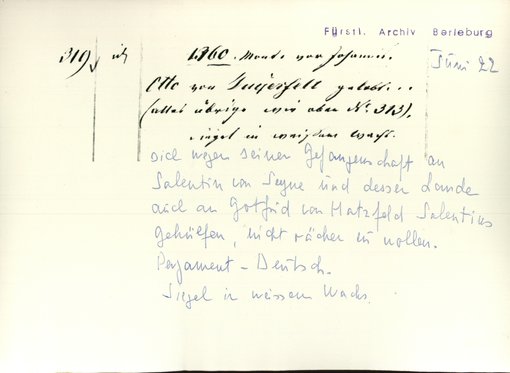 Fürstl. Archiv Berleburg
319, id
1360. Mondt vor Johanni.
Juni 22
Otto von gelobt...
(alles übrige wie oben Nº. 313),
Siegel in weißem Wachs.
sich wegen seiner Gefangenschaft an
Salentin von Seyne und dessen Lande
auch an Gotfrid von Hatzfeld Salentins
gehülfen, nicht rächen zu wollen.
Pergament - Deutsch.
Siegel in weissem Wachs.